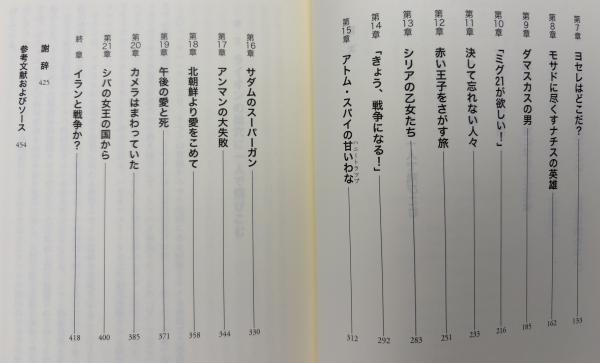 第7章 ヨセレはどこだ? 133
第8章 モサドに尽くすナチスの英雄 162
第9章 ダマスカスの男 185
第10章 「ミグ21が欲しい!」 216
第11章 決して忘れない人々 233
第12章 赤い王子をさがす旅 251
第13章 シリアの乙女たち 283
第14章 「きょう、戦争になる!」 292
第15章 アトム・スパイの甘いわな 312
ハニートラップ
第16章 サダムのスーパーガン 330
第17章 アンマンの大失敗 344
第18章 北朝鮮より愛をこめて 358
第19章 午後の愛と死 371
第20章 カメラはまわっていた 385
第21章 シバの女王の国から 400
終章 イランと戦争か? 418
謝辞 425
参考文献およびソース 454